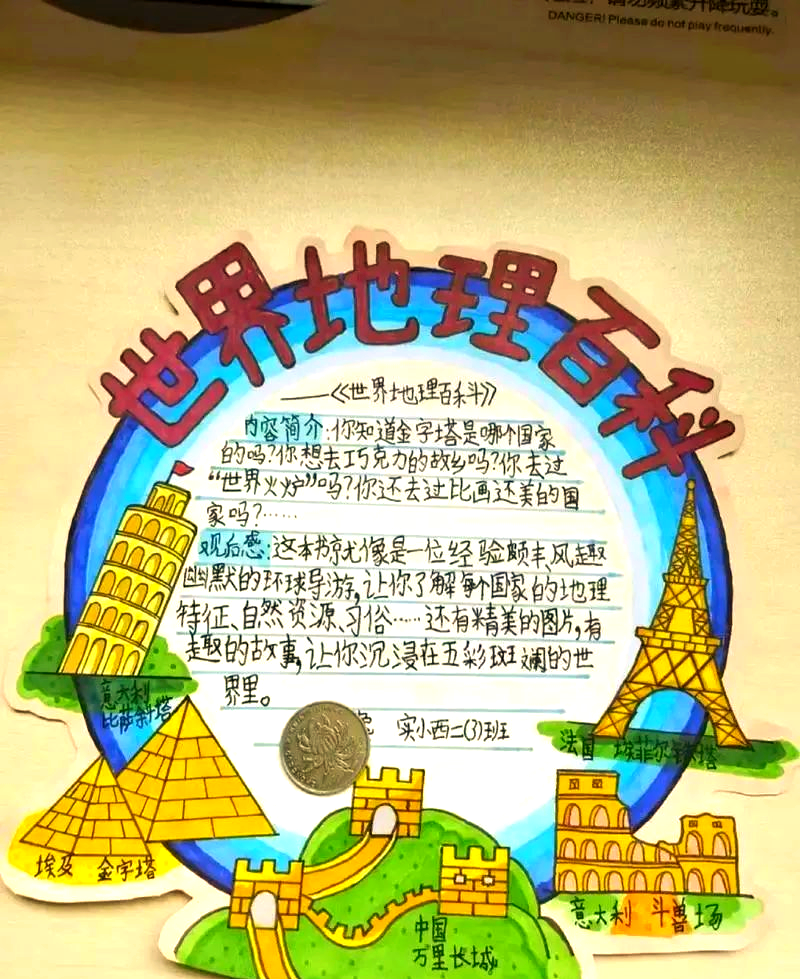 请勿频繁升降玩耍。
DANGER! Please do not play frequently.
世界地理百科
——《世界地理百科》
内容简介：你知道金字塔是哪个国家
的吗？你想去巧克力的故乡吗？你去过
“世界火炉”吗？你还去过比画还美的国
家吗？……
观后感：这本书就像是一位经验颇丰、风趣
幽默的环球导游，让你了解每个国家的地理
特征、自然资源、习俗……还有精美的图片，有
趣的故事，让你沉浸在五彩斑斓的世
界里。
实小西二(3)班
意大利
比萨斜塔
法国 埃菲尔铁塔
埃及 金字塔
意大利 斗兽场
中国
万里长城